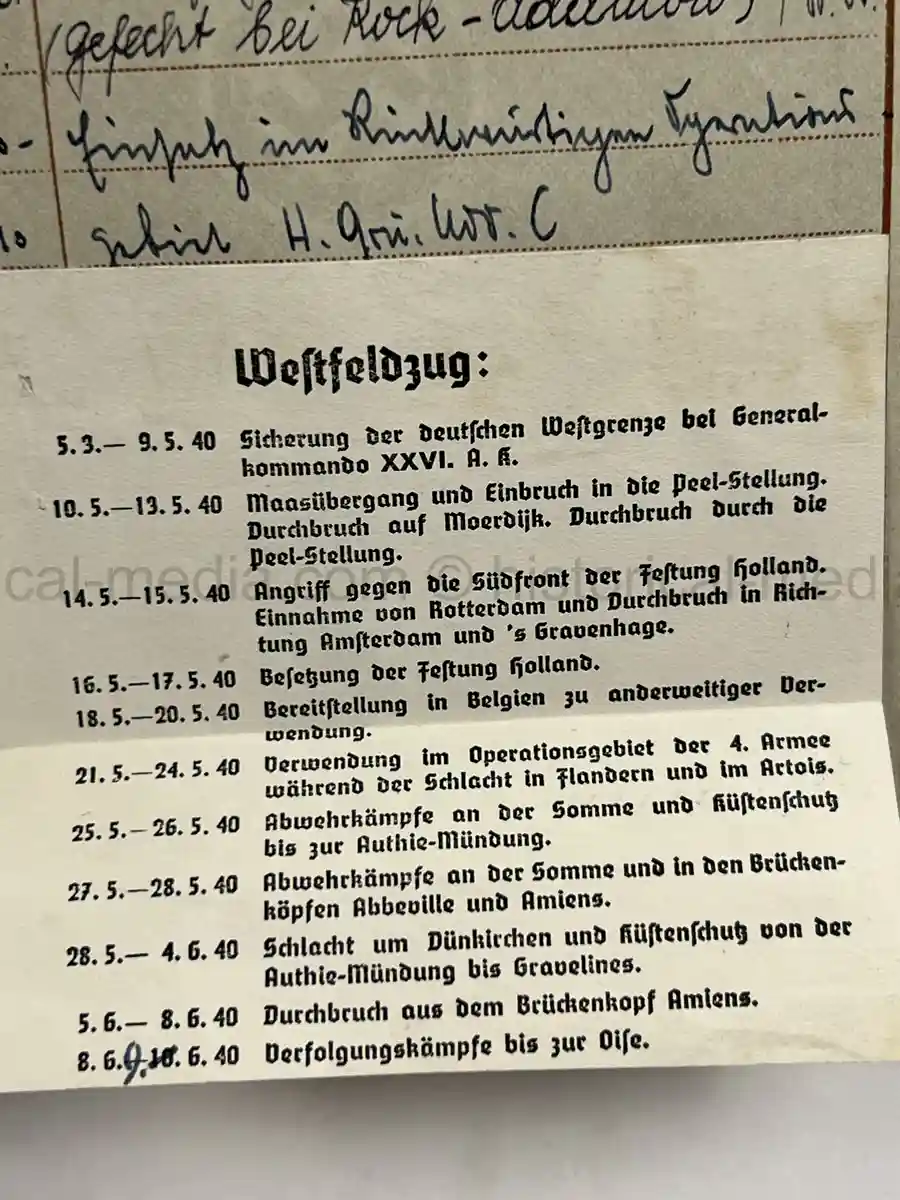 (Gefecht bei Kock - Adamow)
Einsatz im Rückwärtigen Operations
gebiet H. Grü. Kdo. C
Westfeldzug:
5. 3.— 9. 5. 40 Sicherung der deutschen Westgrenze bei General-
kommando XXVI. A. K.
10. 5.—13. 5. 40 Maasübergang und Einbruch in die Peel-Stellung.
Durchbruch auf Moerdijk. Durchbruch durch die
Peel-Stellung.
14. 5.—15. 5. 40 Angriff gegen die Südfront der Festung Holland.
Einnahme von Rotterdam und Durchbruch in Rich-
tung Amsterdam und 's Gravenhage.
16. 5.—17. 5. 40 Besetzung der Festung Holland.
18. 5.—20. 5. 40 Bereitstellung in Belgien zu anderweitiger Ver-
wendung.
21. 5.—24. 5. 40 Verwendung im Operationsgebiet der 4. Armee
während der Schlacht in Flandern und im Artois.
25. 5.—26. 5. 40 Abwehrkämpfe an der Somme und Küstenschutz
bis zur Authie-Mündung.
27. 5.—28. 5. 40 Abwehrkämpfe an der Somme und in den Brücken-
köpfen Abbeville und Amiens.
28. 5.— 4. 6. 40 Schlacht um Dünkirchen und Küstenschutz von der
Authie-Mündung bis Gravelines.
5. 6.— 8. 6. 40 Durchbruch aus dem Brückenkopf Amiens.
8. 6. 9. 6. 40 Verfolgungskämpfe bis zur Oise.